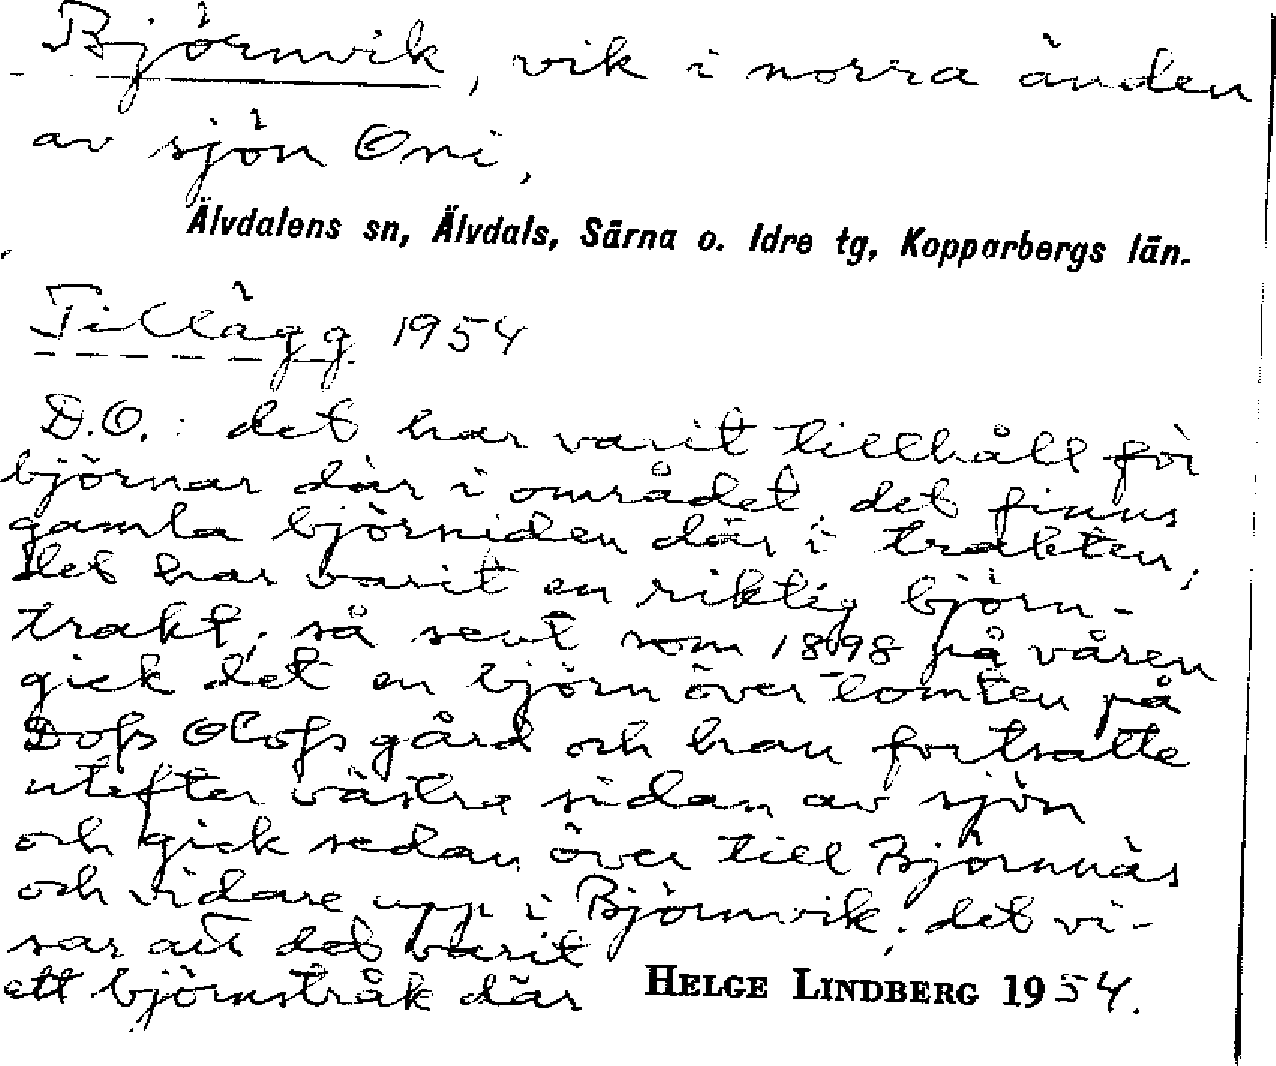 Björnvik, vik i norra änden
av sjön Oni,
Älvdalens sn, Älvdals, Särna o. Idre tg, Kopparbergs län.
Tillägg 1954
D.O.: det har varit tillhåll för
björnar där i området, det finns
gamla björniden där i trakten,
det har varit en riktig björn-
trakt; så sent som 1898 på våren
gick det en björn över tomten på
Dofs Olofs gård och han fortsatte
utefter västra sidan av sjön
och gick sedan över till Björnnäs
och vidare upp i Björnvik; det vi-
sar att det varit
ett björnstråk där
HELGE LINDBERG 1954.